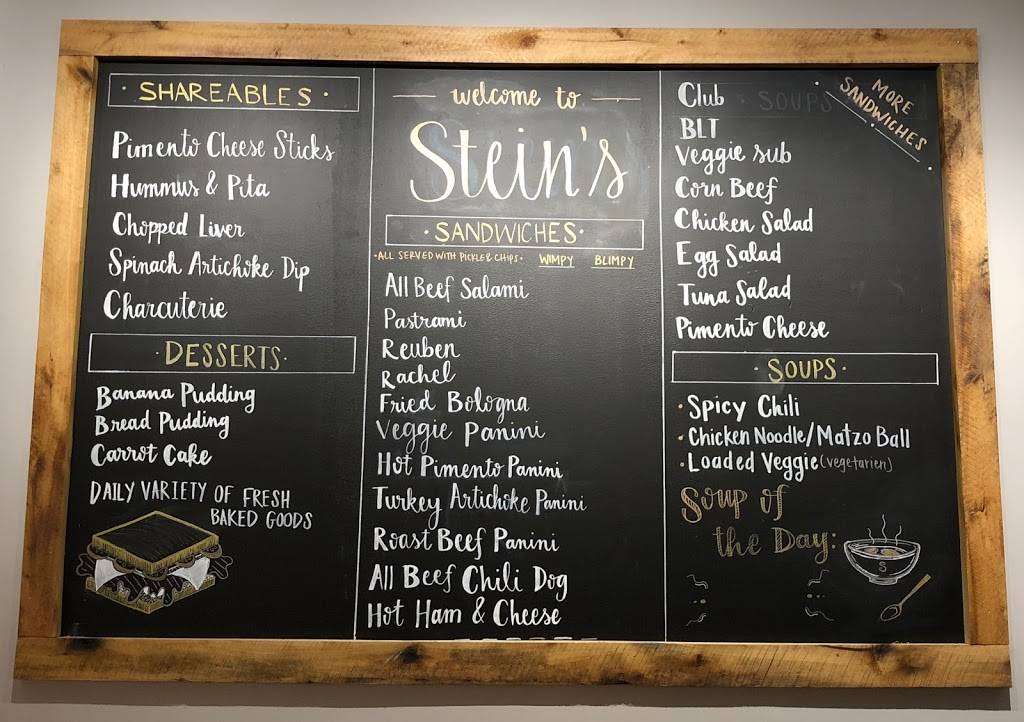 · SHAREABLES ·
Pimento Cheese Sticks
Hummus & Pita
Chopped Liver
Spinach Artichoke Dip
Charcuterie
· DESSERTS ·
Banana Pudding
Bread Pudding
Carrot Cake
DAILY VARIETY OF FRESH
BAKED GOODS
welcome to
Stein's
· SANDWICHES ·
· ALL SERVED WITH PICKLE & CHIPS · WIMPY BLIMPY
All Beef Salami
Pastrami
Reuben
Rachel
Fried Bologna
Veggie Panini
Hot Pimento Panini
Turkey Artichoke Panini
Roast Beef Panini
All Beef Chili Dog
Hot Ham & Cheese
MORE
SANDWICHES
Club
· SOUPS
BLT
Veggie Sub
Corn Beef
Chicken Salad
Egg Salad
Tuna Salad
Pimento Cheese
· SOUPS ·
· Spicy Chili
· Chicken Noodle/Matzo Ball
· Loaded Veggie (vegetarien)
Soup of
the Day:
S